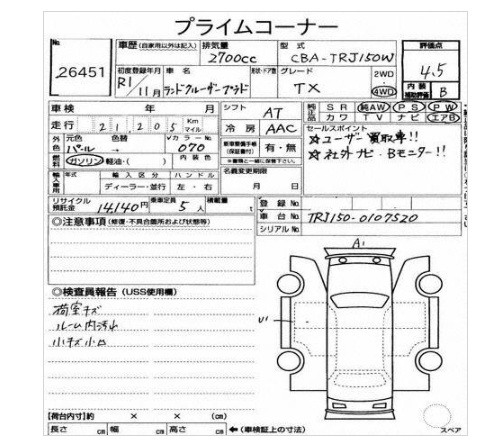 プライムコーナー
No. 26451
車歴 (自家用以外は記入) 排気量 2700cc 型式 CBA-TRJ150W 評価点 4.5
初度登録年月 R1年11月 車名 ランドクルーザープラド 形状・ドア数 グレード TX 2WD・4WD 内装補助評価 B
車検 年 月 シフト AT 純正品 SR 純AW PS PW
走行 21,205 Km マイル 冷房 AAC カワ TV ナビ エアB
外色 元色 パール 色替 → カラーNo. 070 新車整備手帳(保証書付) 有・無 セールスポイント
☆ユーザー買取車!!
☆社外ナビ・Bモニター!!
燃料 ガソリン 軽油・( ) 内装色 ※書類と一緒に保管下さい。
輸入車用 年式 輸入区分 ハンドル 名義変更期限
ディーラー・並行 左・右 月 日
リサイクル預託金 14,140円 乗車定員 5人 積載量 t 登録No.
◎注意事項 (修復・不具合箇所および状態等) 車台No. TRJ150-0107520
シリアルNo.
A1
◎検査員報告 (USS使用欄)
荷室キズ
ルーム内汚れ
小キズ小凹
U1
【荷台内寸】約 × × (cm)
長さ cm 幅 cm 高さ cm ←(車検証上の寸法) スペア